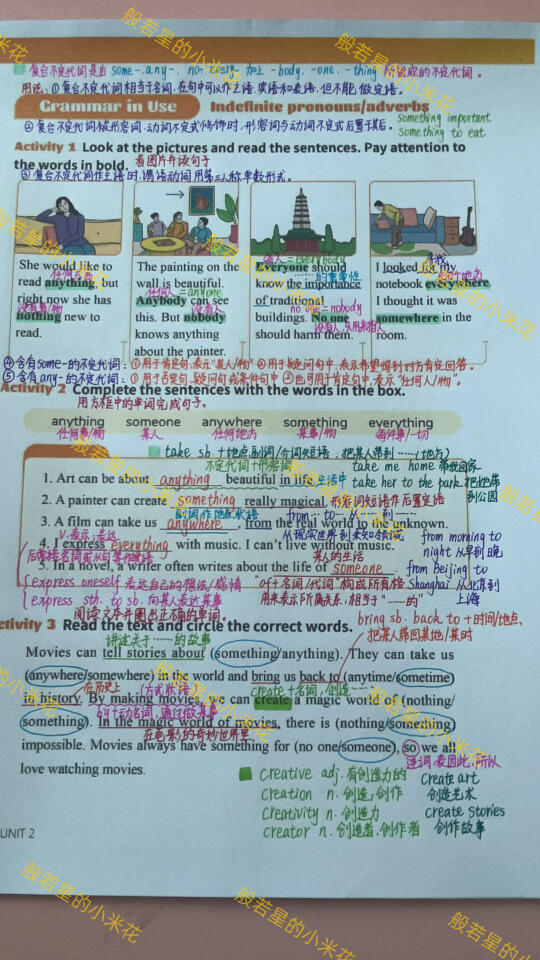 复合不定代词是由 some-. any-. no- every- 加上 -body. -one. -thing 所组成的不定代词。
用法:①复合不定代词相当于名词,在句中可以作主语.宾语和表语,但不能做定语。
Grammar in Use Indefinite pronouns/adverbs
②复合不定代词被形容词.动词不定式修饰时,形容词与动词不定式后置于其后。 something important
something to eat
Activity 1 Look at the pictures and read the sentences. Pay attention to
the words in bold. 看图片并读句子
③复合不定代词作主语时,谓语动词用第三人称单数形式。
She would like to
任何东西
read anything, but
right now she has
没有事/物
nothing new to
read.
The painting on the
wall is beautiful.
任何人 = anyone
Anybody can see
没有人
this. But nobody
knows anything
about the painter.
每人 = everybody
Everyone should
……的重要性
know the importance
of traditional
no one = nobody
buildings. No one
没有人,只用来指人
should harm them.
寻找
I looked for my
每个地方
notebook everywhere.
I thought it was
somewhere in the
room.
④含有some-的不定代词:①用于肯定句,表示"某人/物"②用于疑问句中,表示希望得到对方肯定回答。
⑤含有any-的不定代词:①用于否定句.疑问句或条件句中②也可用于肯定句中,表示"任何人/物"。
Activity 2 Complete the sentences with the words in the box.
用方框中的单词完成句子。
anything someone anywhere something everything
任何事/物 某人 任何地方 某事/物 每件事/一切
take sb.+地点副词/介词短语,把某人带到……(地方)
不定代词+形容词 take me home 带我回家
1. Art can be about anything beautiful in life. 生活中 take her to the park 把她带到公园
2. A painter can create something really magical. 形容词短语作后置定语
副词作地点状语 from…to… 从……到……
3. A film can take us anywhere, from the real world to the unknown.
V.表示;表达 从现实世界到未知领域 from morning to
4. I express everything with music. I can't live without music. night 从早到晚
后常接名词或从句等作宾语 某人的生活 from Beijing to
5. In a novel, a writer often writes about the life of someone. Shanghai 从北京到上海
express oneself 表达自己的想法/感情 "of+名词/代词"构成所有格
express sth. to sb. 向某人表达某事 用来表示所属关系,相当于"……的"
阅读文本并圈出正确的单词。 bring sb. back to +时间/地点,
Activity 3 Read the text and circle the correct words. 把某人带回某地/某时
讲述关于……的故事
Movies can tell stories about (something/anything). They can take us
(anywhere/somewhere) in the world and bring us back to (anytime/sometime)
在历史上 (方式状语) create+名词,创造……
in history. By making movies, we can create a magic world of (nothing/
by+动名词,通过做某事
something). In the magic world of movies, there is (nothing/something)
在电影的奇妙世界里
impossible. Movies always have something for (no one/someone), so we all
连词,表因此,所以
love watching movies.
creative adj. 有创造力的 create art
creation n. 创造;创作 创造艺术
creativity n. 创造力 create stories
creator n. 创造者,创作者 创作故事
UNIT 2
般若星的小米花
般若星的小米花
般若星的小米花
般若星的小米花
般若星的小米花
般若星的小米花
般若星的小米花
般若星的小米花
般若星的小米花
般若星的小米花
般若星的小米花
般若星的小米花